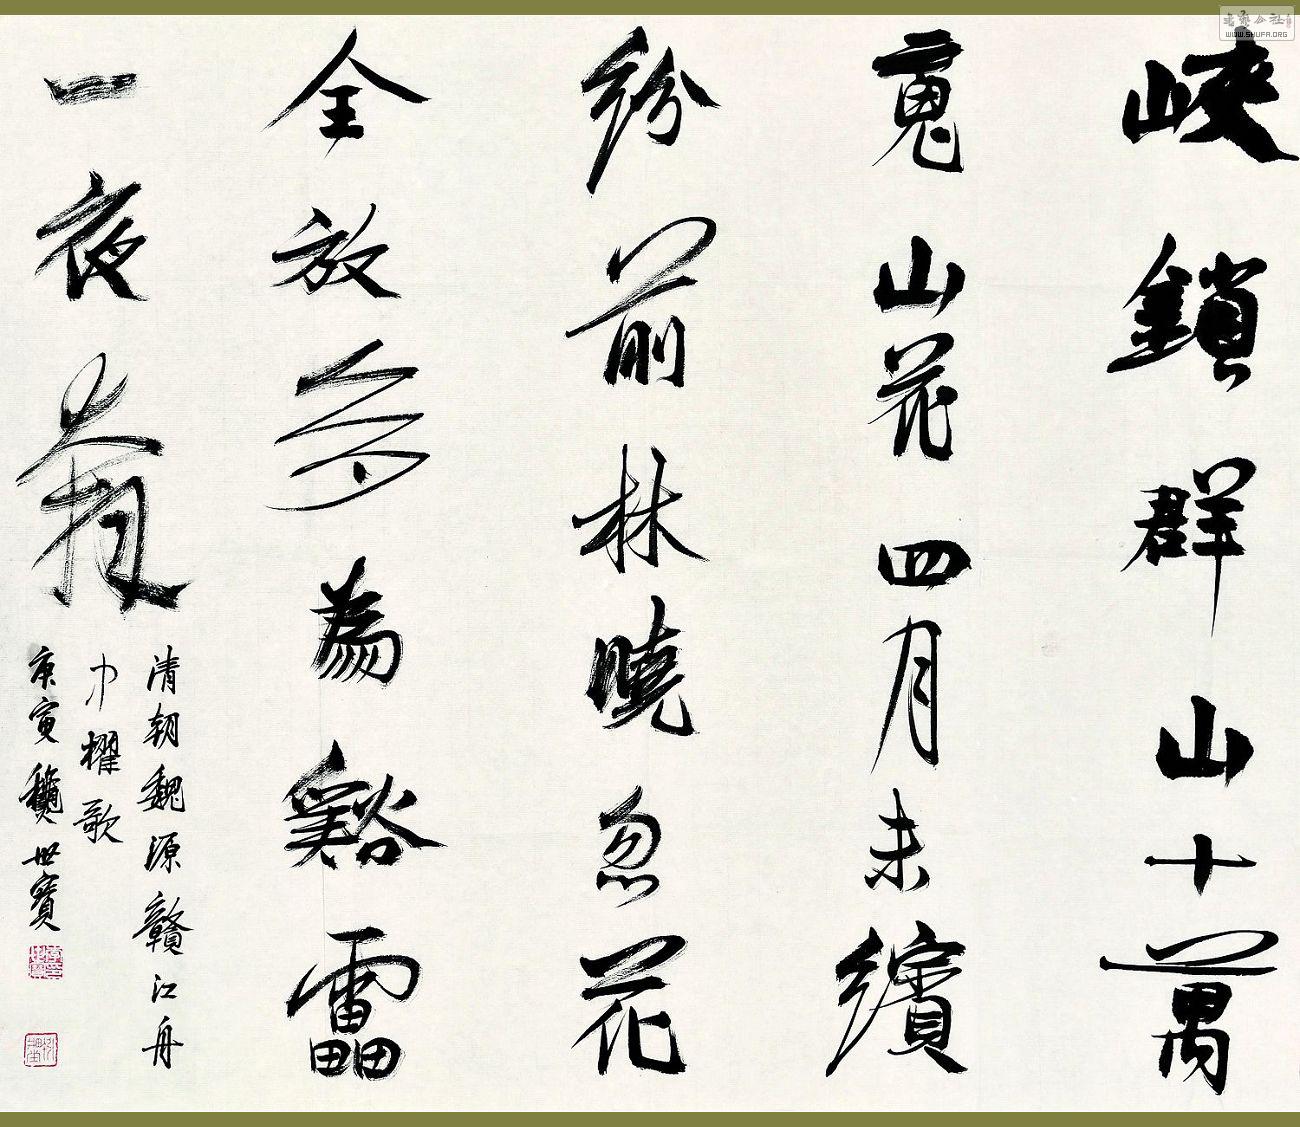 峽鎖群山十萬
䰟山花四月未繽
紛前林曉忽花
全放多為谿靁
一夜
清朝魏源贛江舟
中櫂歌
庚寅世寶
書藝公社
WWW.SHUFA.ORG